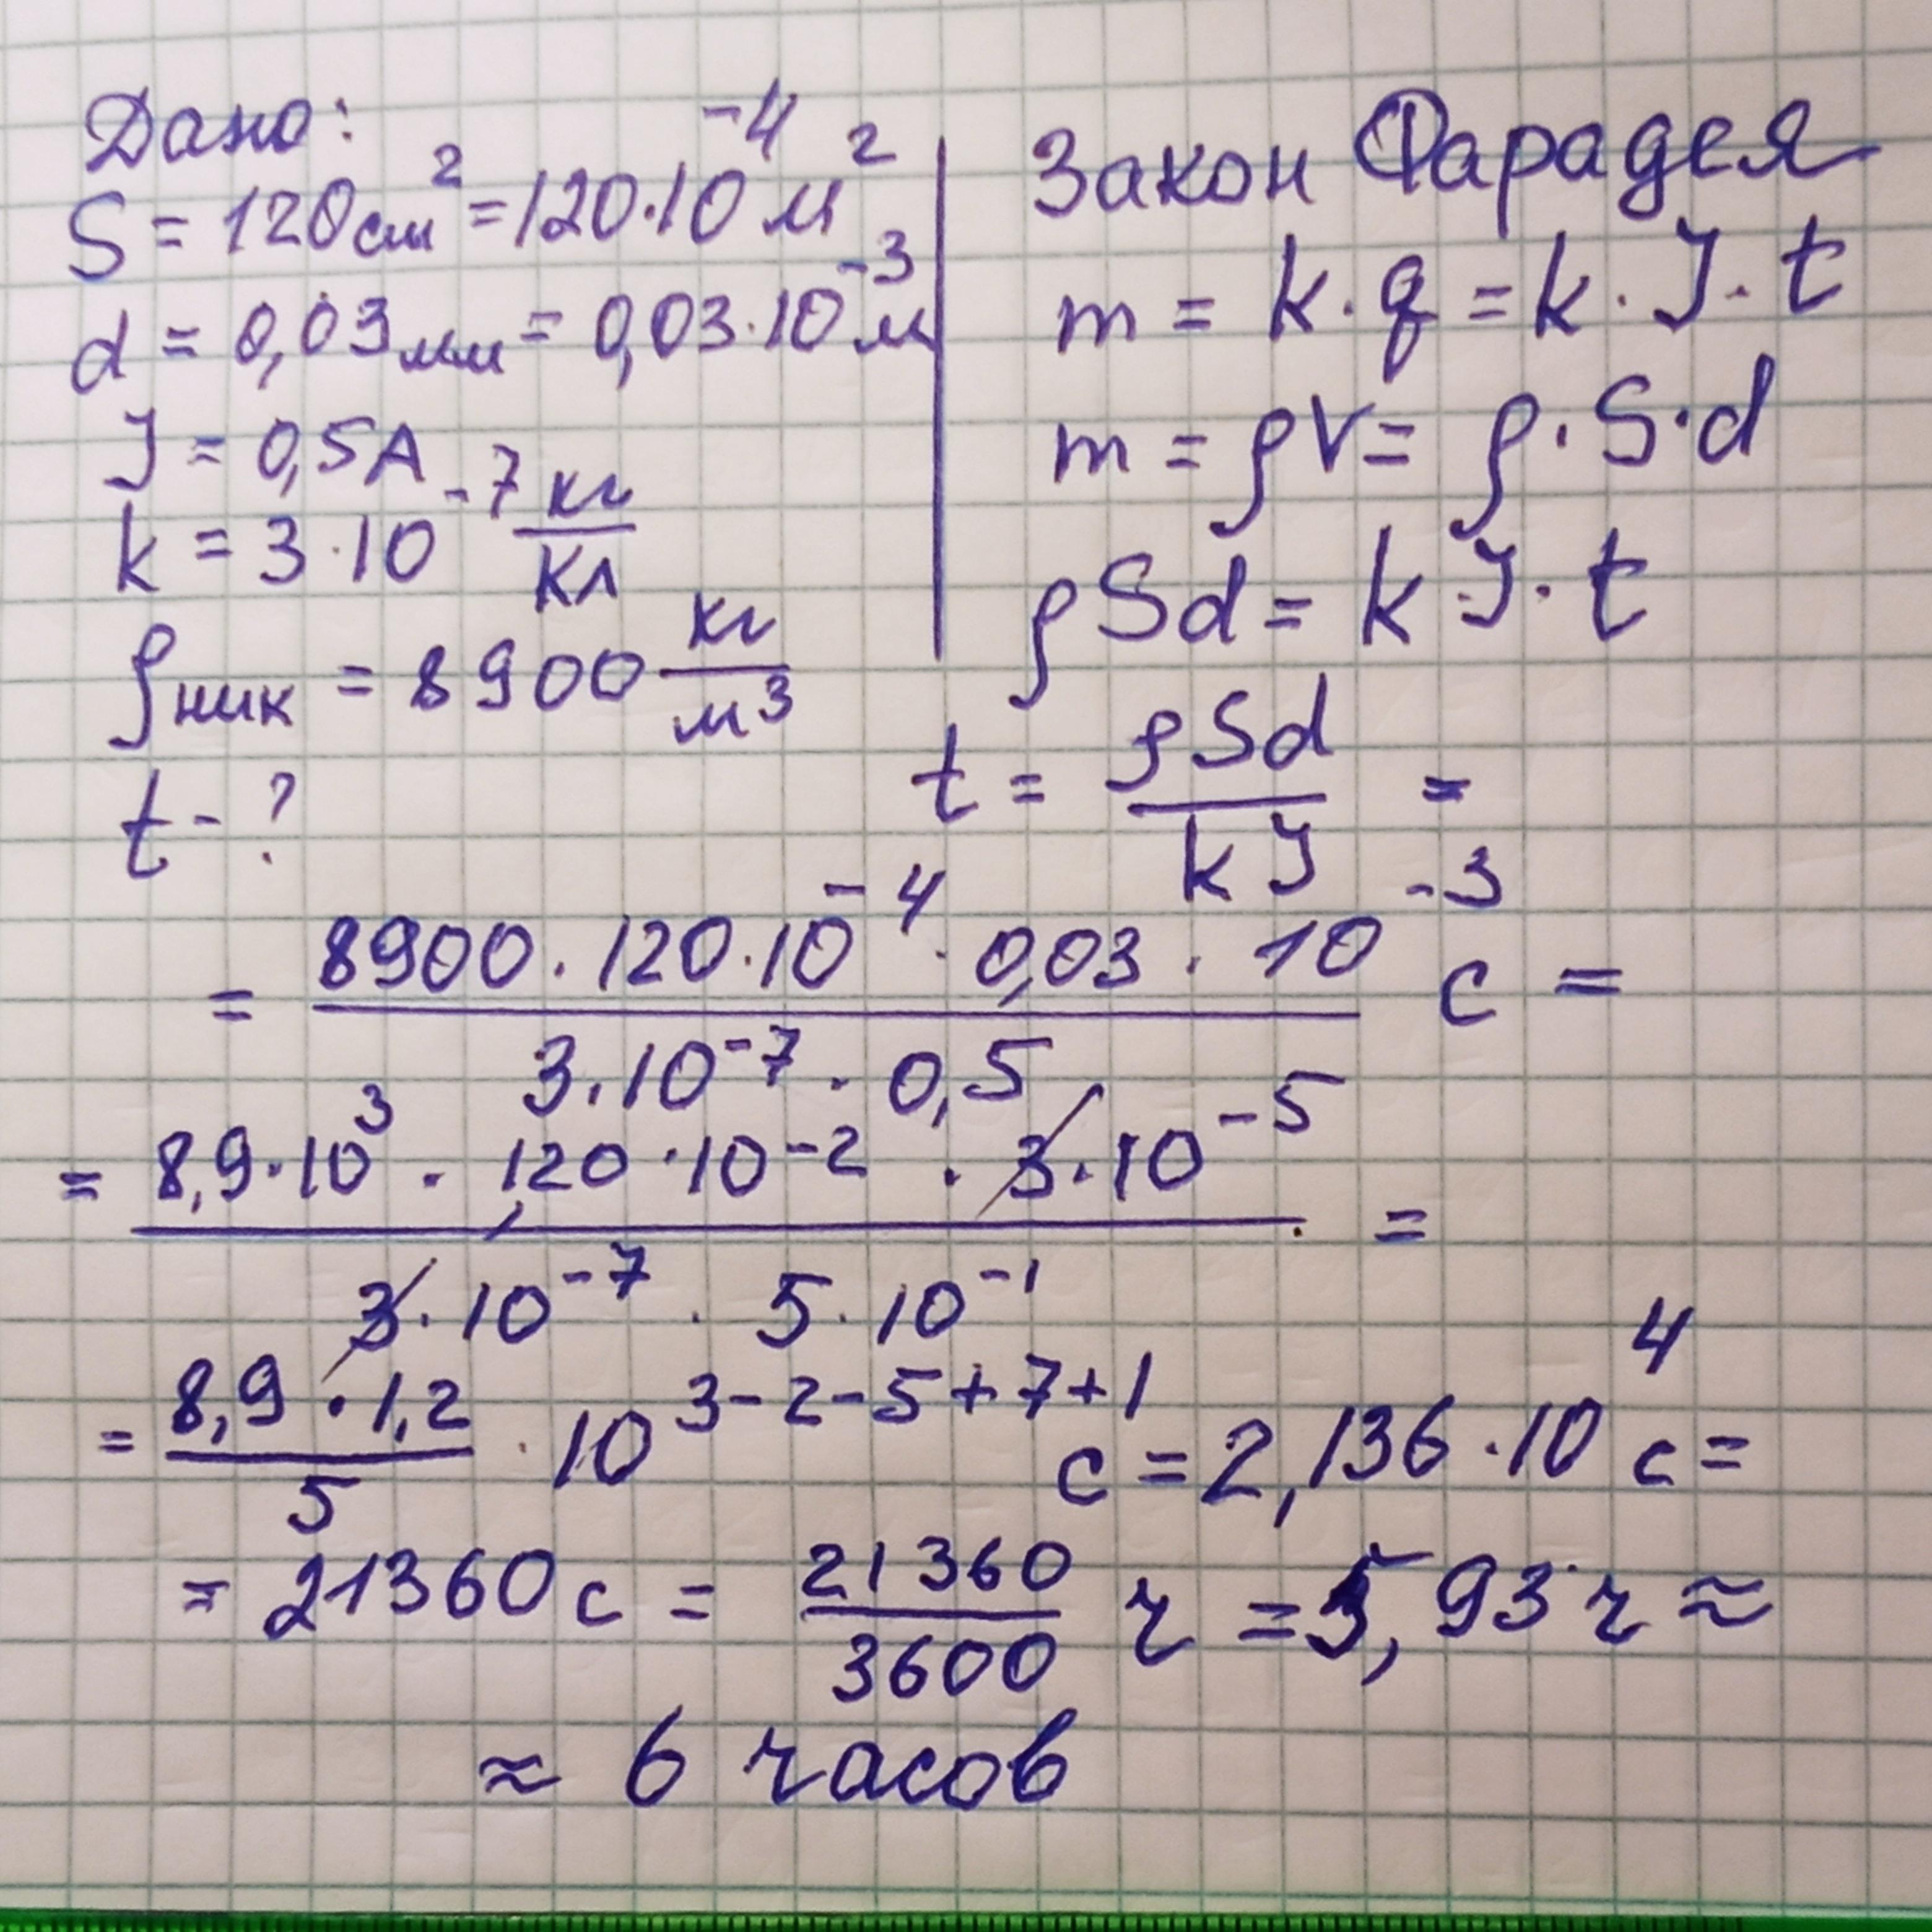 Дано:
S = 120см² = 120·10⁻⁴ м²
d = 0,03мм = 0,03·10⁻³ м
J = 0,5А
k = 3·10⁻⁷ кг/Кл
ρник = 8900 кг/м³
t - ?
Закон Фарадея
m = k·q = k·J·t
m = ρV = ρ·S·d
ρSd = kJ·t
t = ρSd/kJ =
= 8900·120·10⁻⁴·0,03·10⁻³/3·10⁻⁷·0,5 с =
= 8,9·10³·1,20·10⁻²·3·10⁻⁵/3·10⁻⁷·5·10⁻¹ =
= 8,9·1,2/5·10³⁻²⁻⁵⁺⁷⁺¹ с = 2,136·10⁴ с =
= 21360 с = 21360/3600 ч = 5,93 ч ≈
≈ 6 часов